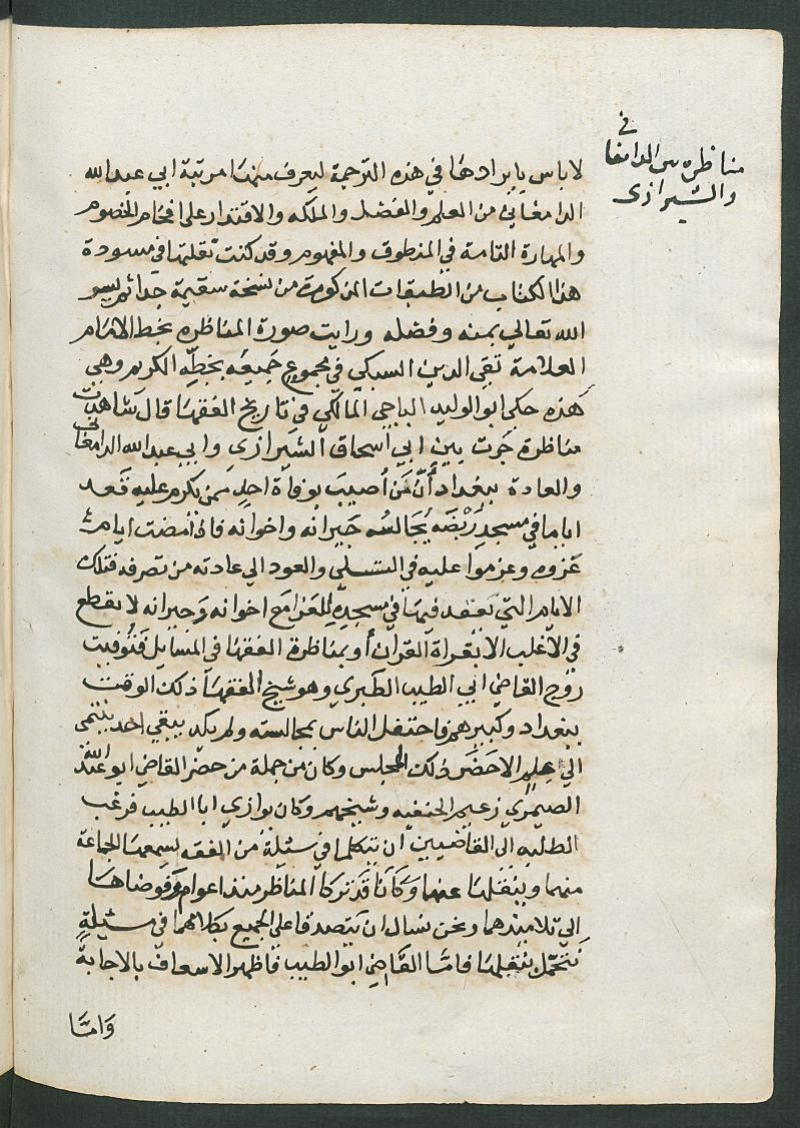 في
مناظره بين الدامغا
والشيرازى
لا باس بايرادها في هذه الترجمة ليعرف منها مرتبة ابي عبدالله
الدامغاني من العلم والفضل والملكه والاقتدار على افحام الخصوم
والمهارة التامة في المنطوق والمفهوم وقد كنت نقلتها في مسودة
هذا الكتاب من الطبقات المذكورة من نسخة سقيمة جدا ثم يسر
الله تعالى بمنه وفضله ورايت صورة المناظره بخط الامام
العلامة تقي الدين السبكي في مجموع جميعه بخطه الكريم وهي
هذه حكى ابو الوليد الباجي المالكي في تاريخ الفقها قال شاهدت
مناظرة جرت بين ابي اسحاق الشيرازي وابي عبد الله الدامغاني
والعادة ببغداد أن من أصيب بوفاة احد ممن يكرم عليه قعد
اياما في مسجد ربضه يجالسه جيرانه واخوانه فاذا مضت ايام
عزوه وعزموا عليه في التسلي والعود الى عادته من تصرفه فتلك
الايام التي يقعد فيها في مسجده للعزا مع اخوانه وجيرانه لا يقطع
في الاغلب الا بقراة القران او بمناظرة الفقها في المسايل فتوفيت
زوج القاضي ابي الطيب الطبري وهو شيخ الفقها ذلك الوقت
ببغداد وكبيرهم فاحتفل الناس بمجالسته ولم يكد يبقي احد ينتمى
الى علم الا حضر ذلك المجلس وكان من جملة من حضر القاضي ابو عبد الله
الصيمري زعيم الحنفيه وشيخهم وكان يوازي ابا الطيب فرغب
الطلبه الى القاضيين ان يتكلما في مسئلة من الفقه يسمعها الجماعة
منهما وينقلها عنهما وكانا قد تركا المناظر منذ اعوام وفوضاها
الى تلاميذهما ونحن نسال ان يتصدقا على الجميع بكلامهما في مسئلة
نتحمل بنقلها فاما القاضي ابو الطيب فاظهر الاسعاف بالاجابة
واما